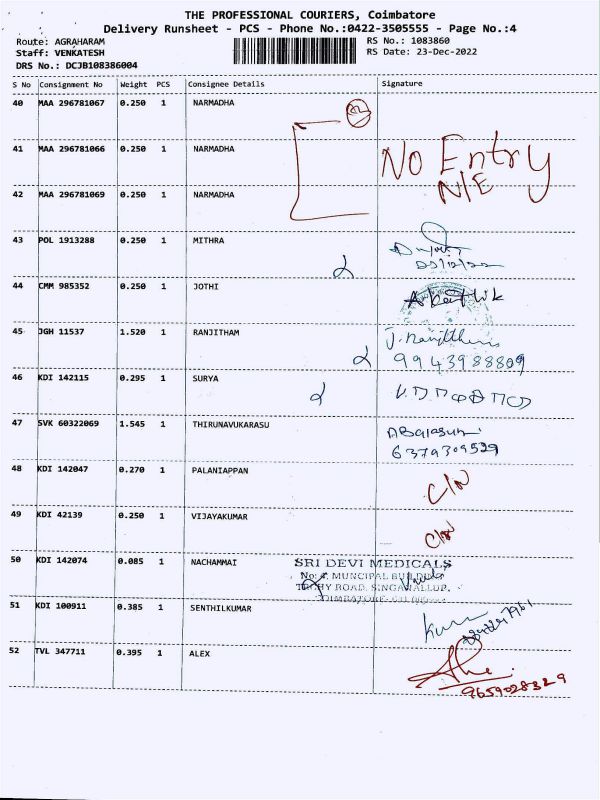 THE PROFESSIONAL COURIERS, Coimbatore
Delivery Runsheet - PCS - Phone No.:0422-3505555 - Page No.:4
Route: AGRAHARAM RS No.: 1083860
Staff: VENKATESH RS Date: 23-Dec-2022
DRS No.: DCJB108386004
S No Consignment No Weight PCS Consignee Details Signature
40 MAA 296781067 0.250 1 NARMADHA
41 MAA 296781066 0.250 1 NARMADHA No Entry
N/E
42 MAA 296781069 0.250 1 NARMADHA
43 POL 1913288 0.250 1 MITHRA
44 CMM 985352 0.250 1 JOTHI
45 JGH 11537 1.520 1 RANJITHAM
9943988809
46 KDI 142115 0.295 1 SURYA
47 SVK 60322069 1.545 1 THIRUNAVUKARASU
6379309529
48 KDI 142047 0.270 1 PALANIAPPAN C/N
49 KDI 42139 0.250 1 VIJAYAKUMAR C/N
50 KDI 142074 0.085 1 NACHAMMAI SRI DEVI MEDICALS
MUNCIPAL BUILDING
ROAD, SINGANALLUR,
51 KDI 100911 0.385 1 SENTHILKUMAR
52 TVL 347711 0.395 1 ALEX
9659028329